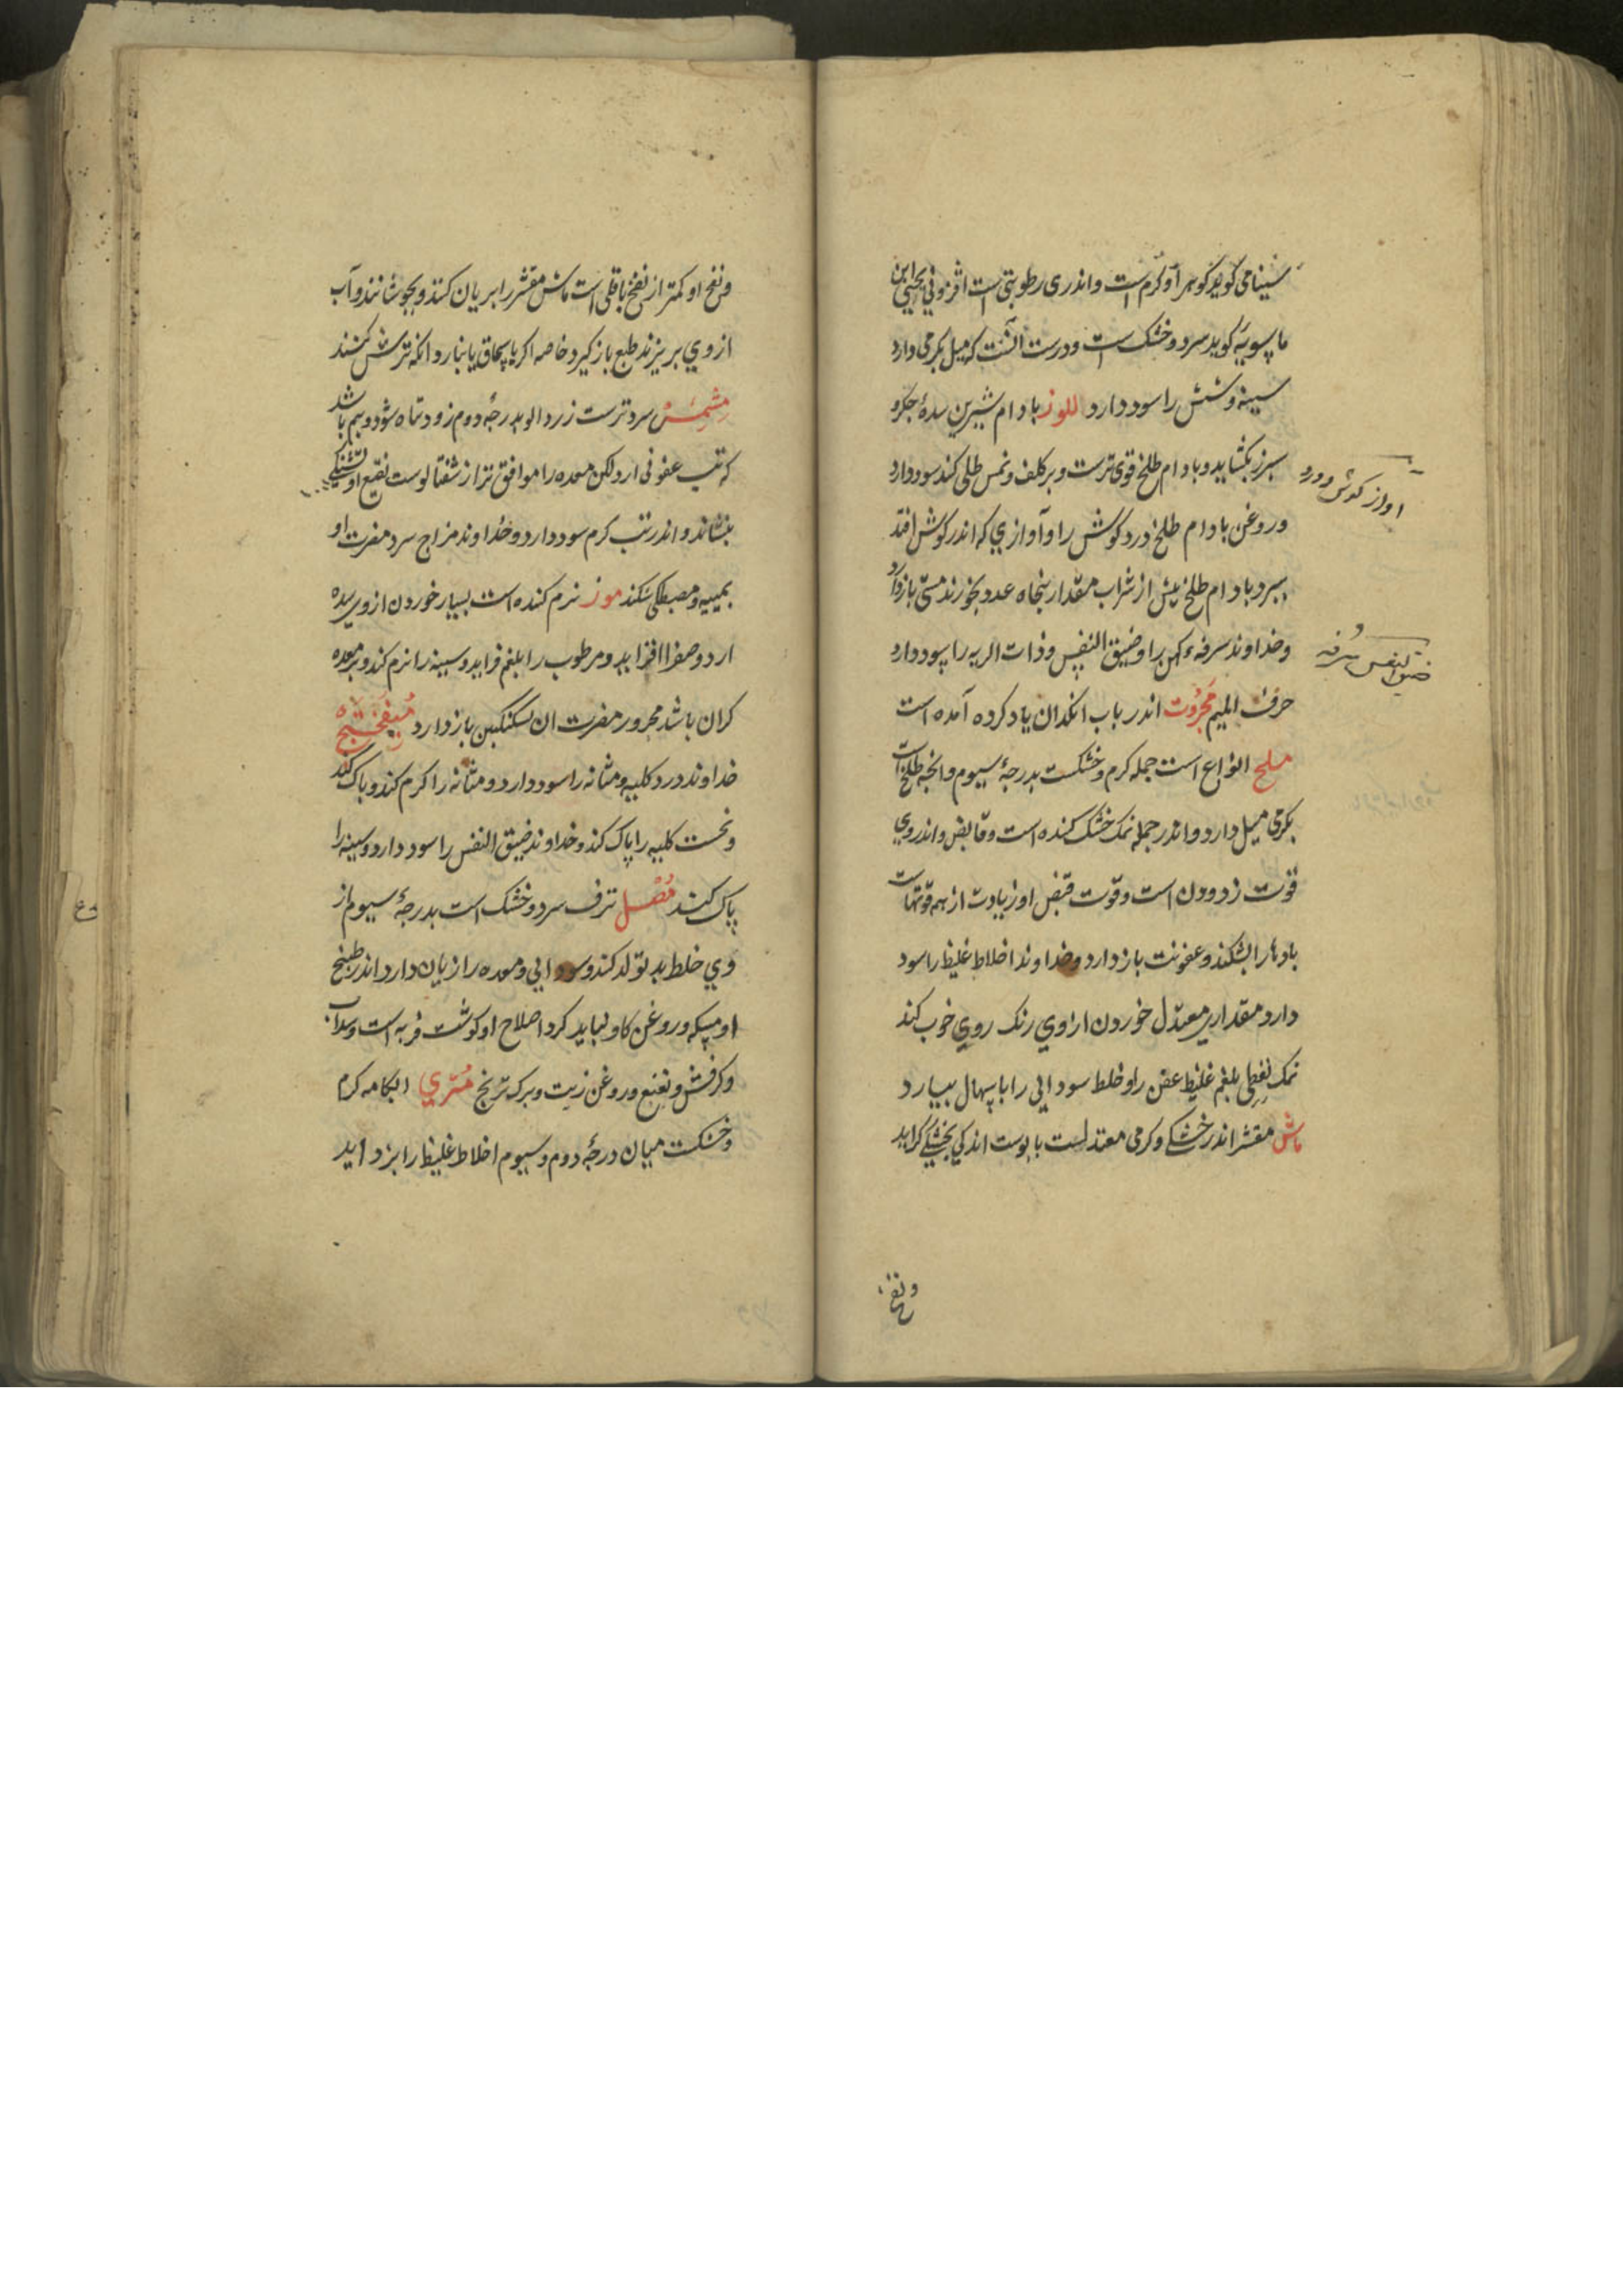 سینا می گوید گوهر او گرم است و اندری رطوبتی است افزونی یحیی ابن
ماسویه گوید سرد و خشک است و درست آنست که میل بگرمی دارد
سینه و شش را سود دارد اللوز بادام شیرین سدهٔ جگر و
سپرز بگشاید و بادام طلخ قوی ترست و بر کلف و نمس طلی کند سود دارد
اواز گوش و درد
و روغن بادام طلخ درد گوش را و آوازی که اندر گوش افتد
ببرد بادام طلخ پیش از شراب مقدار پنجاه عدد بخورند مستی باز دارد
و خداوند سرفهٔ کهن را و ضیق النفس و ذات الریه را سود دارد
ضیق النفس و سرفه
حرف المیم محروت اندر باب انکدان یاد کرده آمده است
ملح انواع است جمله گرم و خشکست بدرجهٔ سیوم و انچه طلخ است
بگرمی میل دارد و اندر جمله نمک خشک کننده است و قابض و اندر وی
قوت زدودن است و قوت قبض او زیادت از همه قوتهاست
بادها را بشکند و عفونت باز دارد و خداوند اخلاط غلیظ را سود
دارد مقداری معتدل خوردن از وی رنک روی خوب کند
نمک نفطی بلغم غلیظ عفن را و خلط سودایی را باسهال بیارد
ماش مقشر اندر خشکی و گرمی معتدلست با پوست اندکی بخشکی گراید
و نفخ
و نفخ او کمتر از نفخ باقلی است ماش مقشر را بریان کنند و بجوشانند و آب
از وی بریزند طبع باز گیرد خاصه اگر با سماق یا بنار دانگ ترش کنند
مشمش سرد ترست زرد الو بدرجهٔ دوم زود تباه شود و بیم باشد
که تب عفونی ارد لکن معده را موافق تر از شفتالوست نقیع او تشنگی
بنشاند و اندر تب گرم سود دارد و خداوند مزاج سرد مضرت او
بمیبه و مصطکی شکند موز نرم کننده است بسیار خوردن از وی سده
ارد و صفرا افزاید و مرطوب را بلغم فزاید و سینه را نرم کند و بر معده
گران باشد محرور مضرت ان بسکنگبین باز دارد میفختج
خداوند درد کلیه و مثانه را سود دارد و مثانه را گرم کند و پاک کند
و نخست کلیه را پاک کند و خداوند ضیق النفس را سود دارد و سینه را
پاک کند مصل ترف سرد و خشک است بدرجهٔ سیوم از
وی خلط بد تولد کند و سودایی و معده را زیان دارد اندر طبخ
او مسکه و روغن گاو بباید کرد اصلاح او گوشت فربه است و سداب
و کرفس و نعنع و روغن زیت و برک ترنج مری ابکامه گرم
و خشکست میان درجهٔ دوم و سیوم اخلاط غلیظ را بزداید